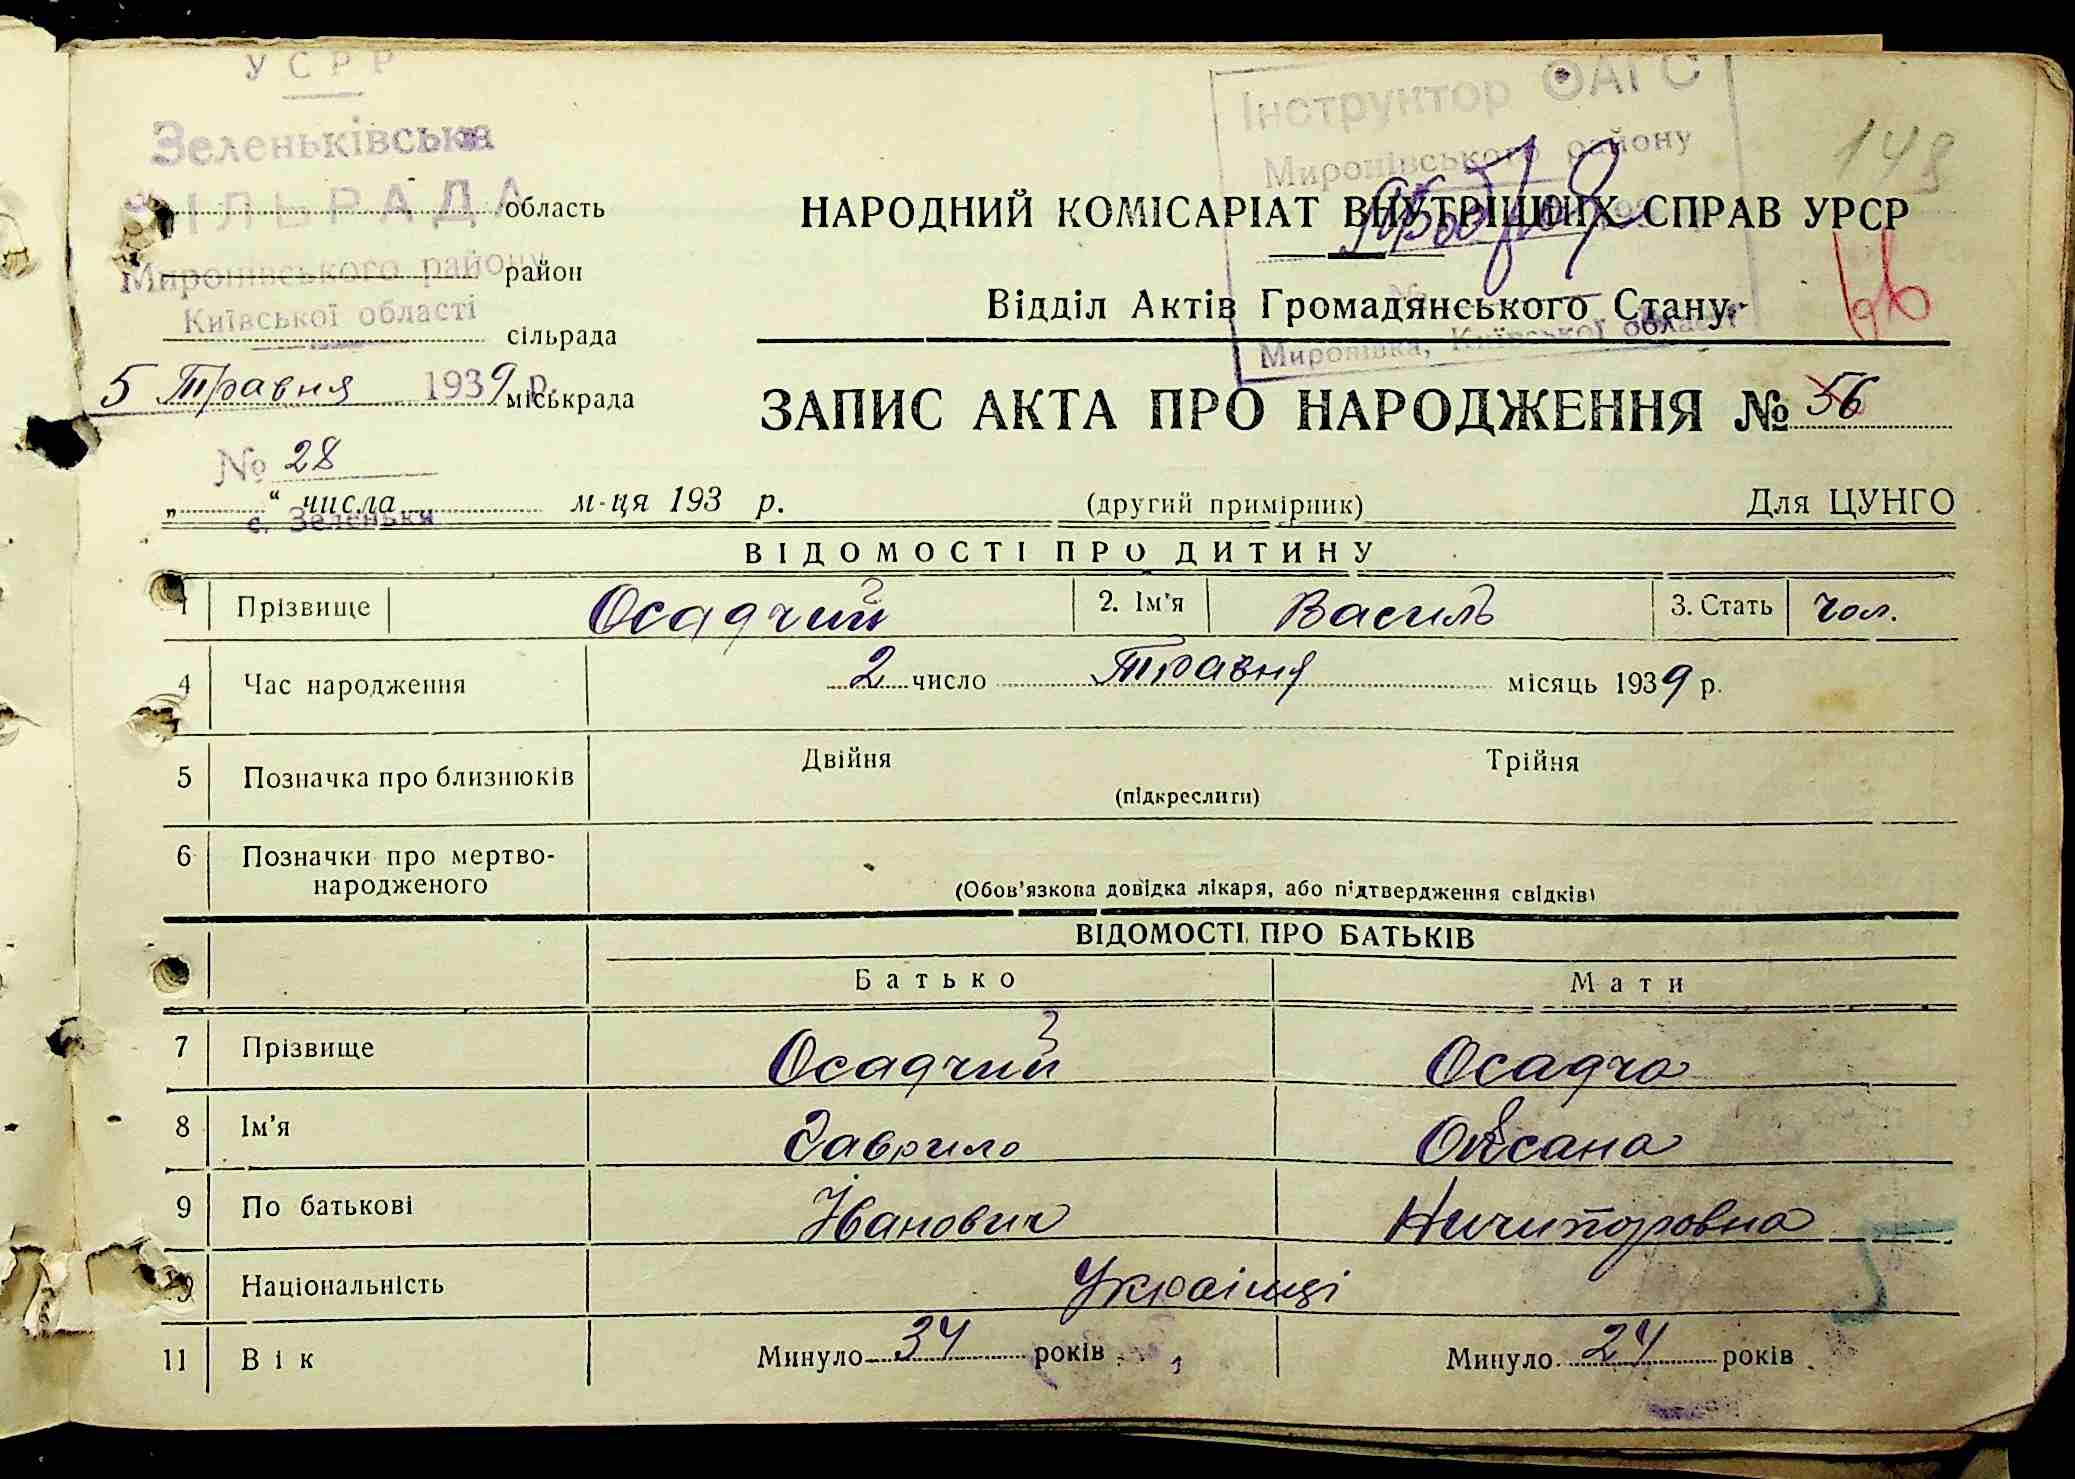 УСРР
Зеленьківська
СІЛЬРАДА
Миронівського району
Київської області
область
район
сільрада
міськрада
5 Травня 1939 р.
№ 28
с. Зеленьки
„ “ числа м-ця 193 р.
Інструктор ОАГС
Миронівського району
Миронівка, Київської області
148
НАРОДНИЙ КОМІСАРІАТ ВНУТРІШНІХ СПРАВ УРСР
Відділ Актів Громадянського Стану
ЗАПИС АКТА ПРО НАРОДЖЕННЯ № 56
(другий примірник) Для ЦУНГО
ВІДОМОСТІ ПРО ДИТИНУ
1 Прізвище Осадчий 2. Ім'я Василь 3. Стать чол.
4 Час народження 2 число Травня місяць 1939 р.
5 Позначка про близнюків Двійня Трійня
(підкреслити)
6 Позначки про мертво-
народженого
(Обов'язкова довідка лікаря, або підтвердження свідків)
ВІДОМОСТІ ПРО БАТЬКІВ
Батько Мати
7 Прізвище Осадчий Осадча
8 Ім'я Гаврило Оксана
9 По батькові Іванович Ничипоровна
10 Національність Українці
11 Вік Минуло 34 років Минуло 24 років